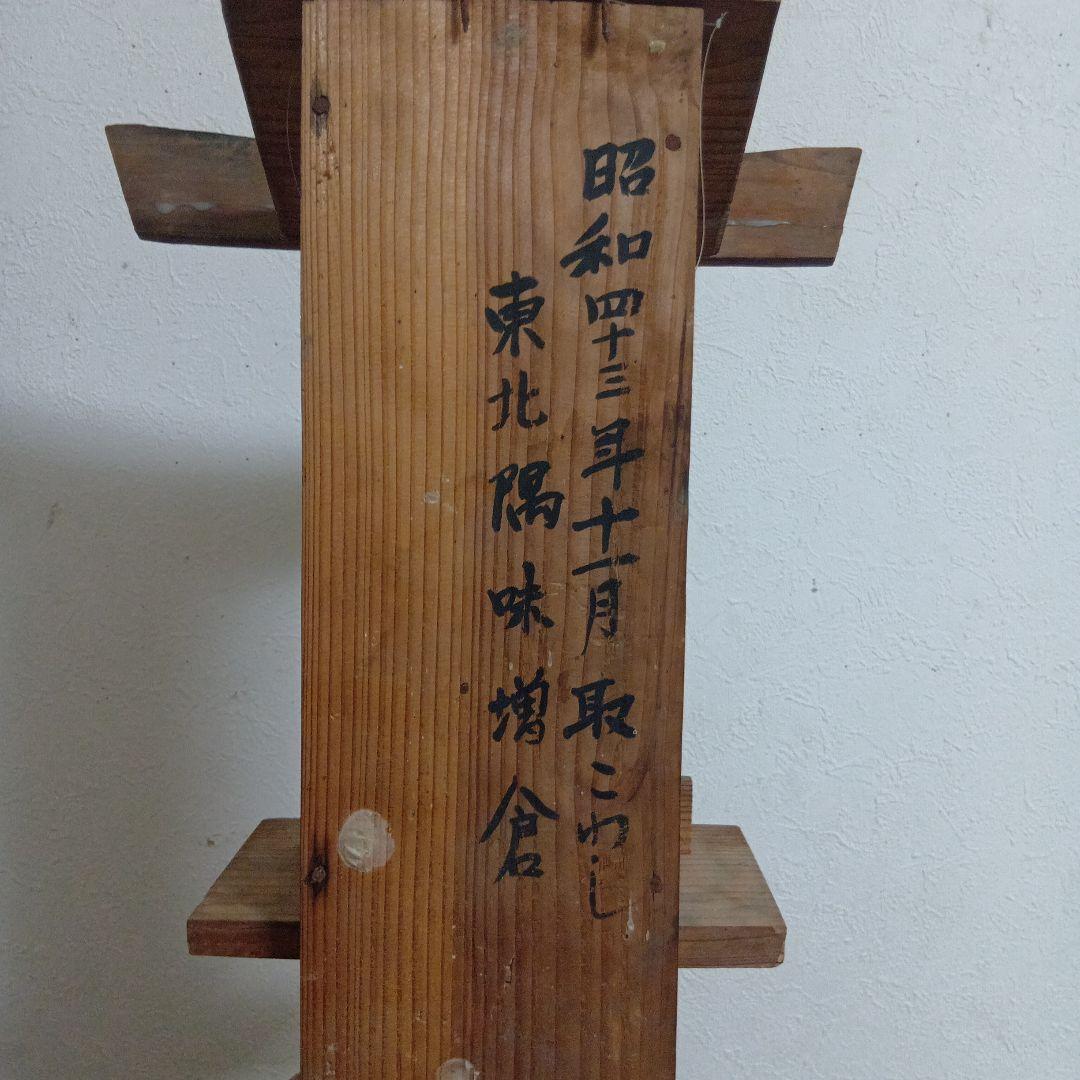 昭和四十三年十一月取こわし
東北隅味増倉